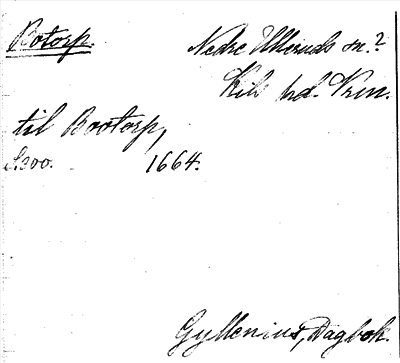 Botorp.
Nedre Ulleruds sn.?
Kils hd. Vrm.
til Bootorp,
S. 300. 1664.
Gyllenius, Dagbok.